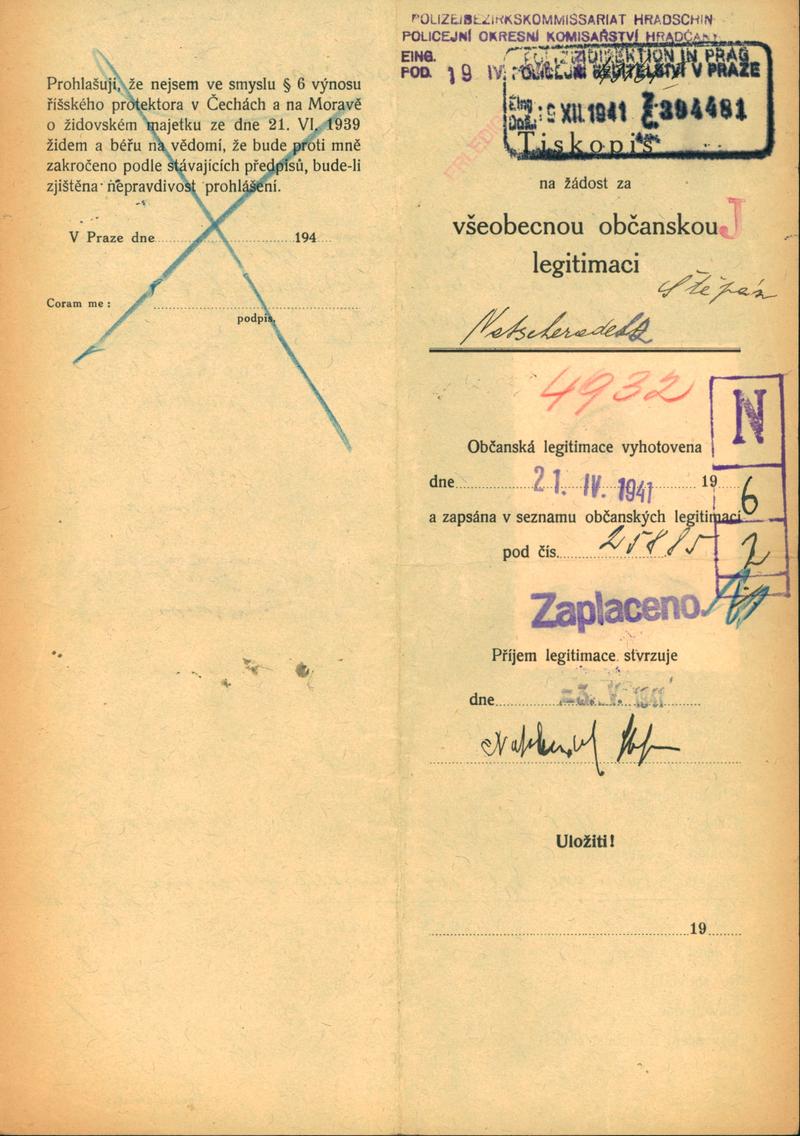 Prohlašuji, že nejsem ve smyslu § 6 výnosu
říšského protektora v Čechách a na Moravě
o židovském majetku ze dne 21. VI. 1939
židem a béřu na vědomí, že bude proti mně
zakročeno podle stávajících předpisů, bude-li
zjištěna nepravdivost prohlášení.
V Praze dne 194
Coram me :
podpis.
POLIZEIBEZIRKSKOMMISSARIAT HRADSCHIN
POLICEJNÍ OKRESNÍ KOMISAŘSTVÍ HRADČANY
EING.
POD. 19 IV.
POLIZEIDIREKTION IN PRAG
POLICEJNÍ ŘEDITELSTVÍ V PRAZE
Eing.
Doš.: 9 XII. 1941 Ž 394481
ERLEDIGT
Tiskopis
na žádost za
všeobecnou občanskou J
legitimaci
Štěpán
Natscheradetz
4932
N
Občanská legitimace vyhotovena
dne 21. IV. 1941 19
6
a zapsána v seznamu občanských legitimací
pod čís. 25885
2
Zaplaceno.
Příjem legitimace stvrzuje
dne -3. V. 1941
Uložiti!
19